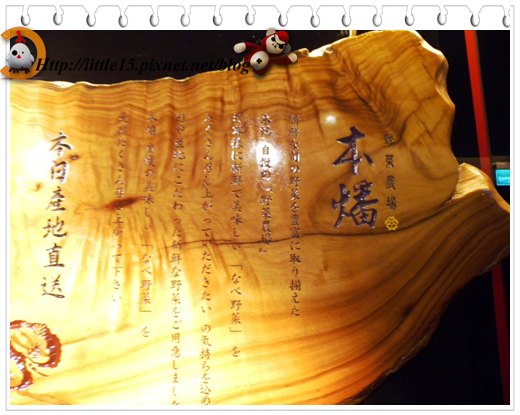 Http://little15.pixnet.net/blog
野菜農場
本燔
新鮮な旬の野菜を豊富に取り揃えた
本燔 自慢の「野菜農場」
お客様に新鮮で美味しい「なべ野菜」を
たくさん召し上がっていただきたい の気持ちを込め
日本産地にこだわった新鮮な野菜をご用意しました
本燔 自慢の美味しい「なべ野菜」を
是非たくさんお召し上がって下さい
本日産地直送